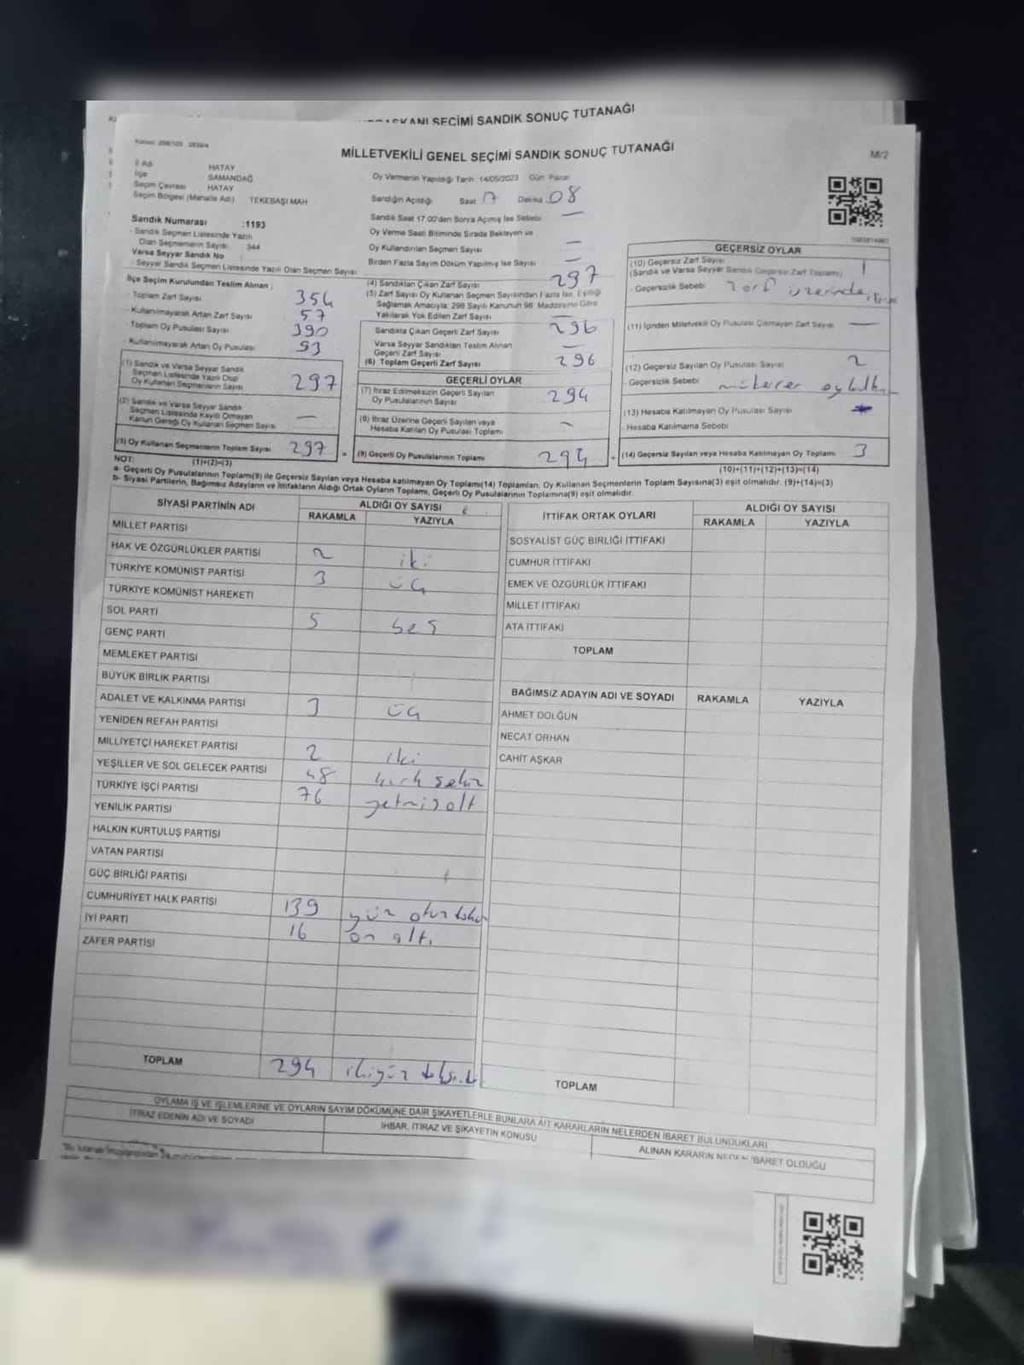 BAŞKANI SEÇİMİ SANDIK SONUÇ TUTANAĞI
MİLLETVEKİLİ GENEL SEÇİMİ SANDIK SONUÇ TUTANAĞI
M/2
İl Adı HATAY
İlçe SAMANDAĞ
Seçim Çevresi HATAY
Seçim Bölgesi (Mahalle Adı) TEKEBAŞI MAH
Oy Vermenin Yapıldığı Tarih 14/05/2023 Gün Pazar
Sandığın Açıldığı Saat 17 Dakika 08
Sandık Saat 17.00'den Sonra Açılmış İse Sebebi —
Oy Verme Saati Bitiminde Sırada Bekleyen ve
Oy Kullandırılan Seçmen Sayısı —
Birden Fazla Sayım Döküm Yapılmış İse Sayısı —
Sandık Numarası :1193
- Sandık Seçmen Listesinde Yazılı
Olan Seçmenlerin Sayısı: 344
Varsa Seyyar Sandık No
- Seyyar Sandık Seçmen Listesinde Yazılı Olan Seçmen Sayısı
İlçe Seçim Kurulundan Teslim Alınan ;
- Toplam Zarf Sayısı 354
- Kullanılmayarak Artan Zarf Sayısı 57
Toplam Oy Pusulası Sayısı 390
- Kullanılmayarak Artan Oy Pusulası 93
(1) Sandık ve Varsa Seyyar Sandık
Seçmen Listesinde Yazılı Olup
Oy Kullanan Seçmenlerin Sayısı 297
(2) Sandık ve Varsa Seyyar Sandık
Seçmen Listesinde Kayıtlı Olmayan
Kanun Gereği Oy Kullanan Seçmen Sayısı —
(3) Oy Kullanan Seçmenlerin Toplam Sayısı 297
(4) Sandıktan Çıkan Zarf Sayısı 297
(5) Zarf Sayısı Oy Kullanan Seçmen Sayısından Fazla İse, Eşitliği
Sağlamak Amacıyla; 298 Sayılı Kanunun 98. Maddesine Göre
Yakılarak Yok Edilen Zarf Sayısı —
Sandıkta Çıkan Geçerli Zarf Sayısı 296
Varsa Seyyar Sandıktan Teslim Alınan
Geçerli Zarf Sayısı —
(6) Toplam Geçerli Zarf Sayısı 296
GEÇERLİ OYLAR
(7) İtiraz Edilmeksizin Geçerli Sayılan
Oy Pusulalarının Sayısı 294
(8) İtiraz Üzerine Geçerli Sayılan veya
Hesaba Katılan Oy Pusulası Toplamı —
= (9) Geçerli Oy Pusulalarının Toplamı 294
GEÇERSİZ OYLAR
(10) Geçersiz Zarf Sayısı 1
(Sandık ve Varsa Seyyar Sandık Geçersiz Zarf Toplamı)
- Geçersizlik Sebebi zarf üzerinde
(11) İçinden Milletvekili Oy Pusulası Çıkmayan Zarf Sayısı —
(12) Geçersiz Sayılan Oy Pusulası Sayısı 2
Geçersizlik Sebebi
(13) Hesaba Katılmayan Oy Pusulası Sayısı
Hesaba Katılmama Sebebi
+ (14) Geçersiz Sayılan veya Hesaba Katılmayan Oy Toplamı 3
NOT: (1)+(2)=(3)
(10)+(11)+(12)+(13)=(14)
a- Geçerli Oy Pusulalarının Toplamı(9) ile Geçersiz Sayılan veya Hesaba katılmayan Oy Toplamı(14) Toplamları, Oy Kullanan Seçmenlerin Toplam Sayısına(3) eşit olmalıdır. (9)+(14)=(3)
b- Siyasi Partilerin, Bağımsız Adayların ve İttifakların Aldığı Ortak Oyların Toplamı, Geçerli Oy Pusulalarının Toplamına(9) eşit olmalıdır.
SİYASİ PARTİNİN ADI ALDIĞI OY SAYISI
RAKAMLA YAZIYLA
MİLLET PARTİSİ
HAK VE ÖZGÜRLÜKLER PARTİSİ 2 iki
TÜRKİYE KOMÜNİST PARTİSİ 3 üç
TÜRKİYE KOMÜNİST HAREKETİ
SOL PARTİ 5 beş
GENÇ PARTİ
MEMLEKET PARTİSİ
BÜYÜK BİRLİK PARTİSİ
ADALET VE KALKINMA PARTİSİ 3 üç
YENİDEN REFAH PARTİSİ
MİLLİYETÇİ HAREKET PARTİSİ 2 iki
YEŞİLLER VE SOL GELECEK PARTİSİ 48 kırk sekiz
TÜRKİYE İŞÇİ PARTİSİ 76 yetmiş altı
YENİLİK PARTİSİ
HALKIN KURTULUŞ PARTİSİ
VATAN PARTİSİ
GÜÇ BİRLİĞİ PARTİSİ
CUMHURİYET HALK PARTİSİ 139 yüz otuz dokuz
İYİ PARTİ 16 on altı
ZAFER PARTİSİ
TOPLAM 294 ikiyüz doksan dört
İTTİFAK ORTAK OYLARI ALDIĞI OY SAYISI
RAKAMLA YAZIYLA
SOSYALİST GÜÇ BİRLİĞİ İTTİFAKI
CUMHUR İTTİFAKI
EMEK VE ÖZGÜRLÜK İTTİFAKI
MİLLET İTTİFAKI
ATA İTTİFAKI
TOPLAM
BAĞIMSIZ ADAYIN ADI VE SOYADI RAKAMLA YAZIYLA
AHMET DOLĞUN
NECAT ORHAN
CAHİT AŞKAR
TOPLAM
OYLAMA İŞ VE İŞLEMLERİNE VE OYLARIN SAYIM DÖKÜMÜNE DAİR ŞİKAYETLERLE BUNLARA AİT KARARLARIN NELERDEN İBARET BULUNDUKLARI
İTİRAZ EDENİN ADI VE SOYADI
İHBAR, İTİRAZ VE ŞİKAYETİN KONUSU
ALINAN KARARIN NEDEN İBARET OLDUĞU